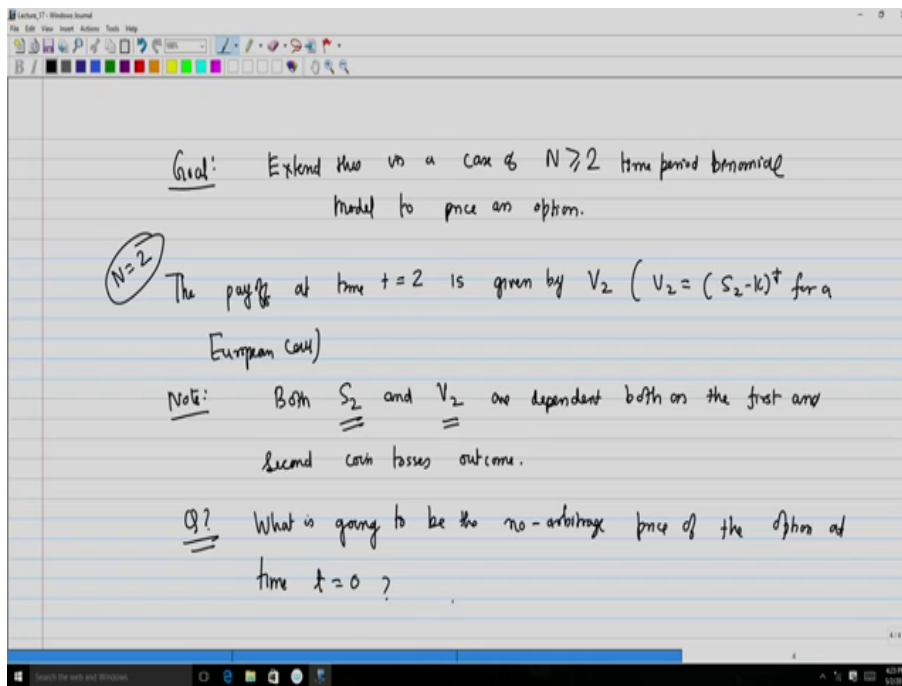 Lecture_17 - Windows Journal
File Edit View Insert Actions Tools Help
B I
Goal: Extend this in a case of N ⩾ 2 time period binomial
model to price an option.
N=2
The payoff at time t = 2 is given by V₂ ( V₂ = (S₂-K)⁺ for a
European call)
Note: Both S₂ and V₂ are dependent both on the first and
second coin tosses outcome.
Q? What is going to be the no-arbitrage price of the option at
time t = 0 ?
4/4
4
Search the web and Windows